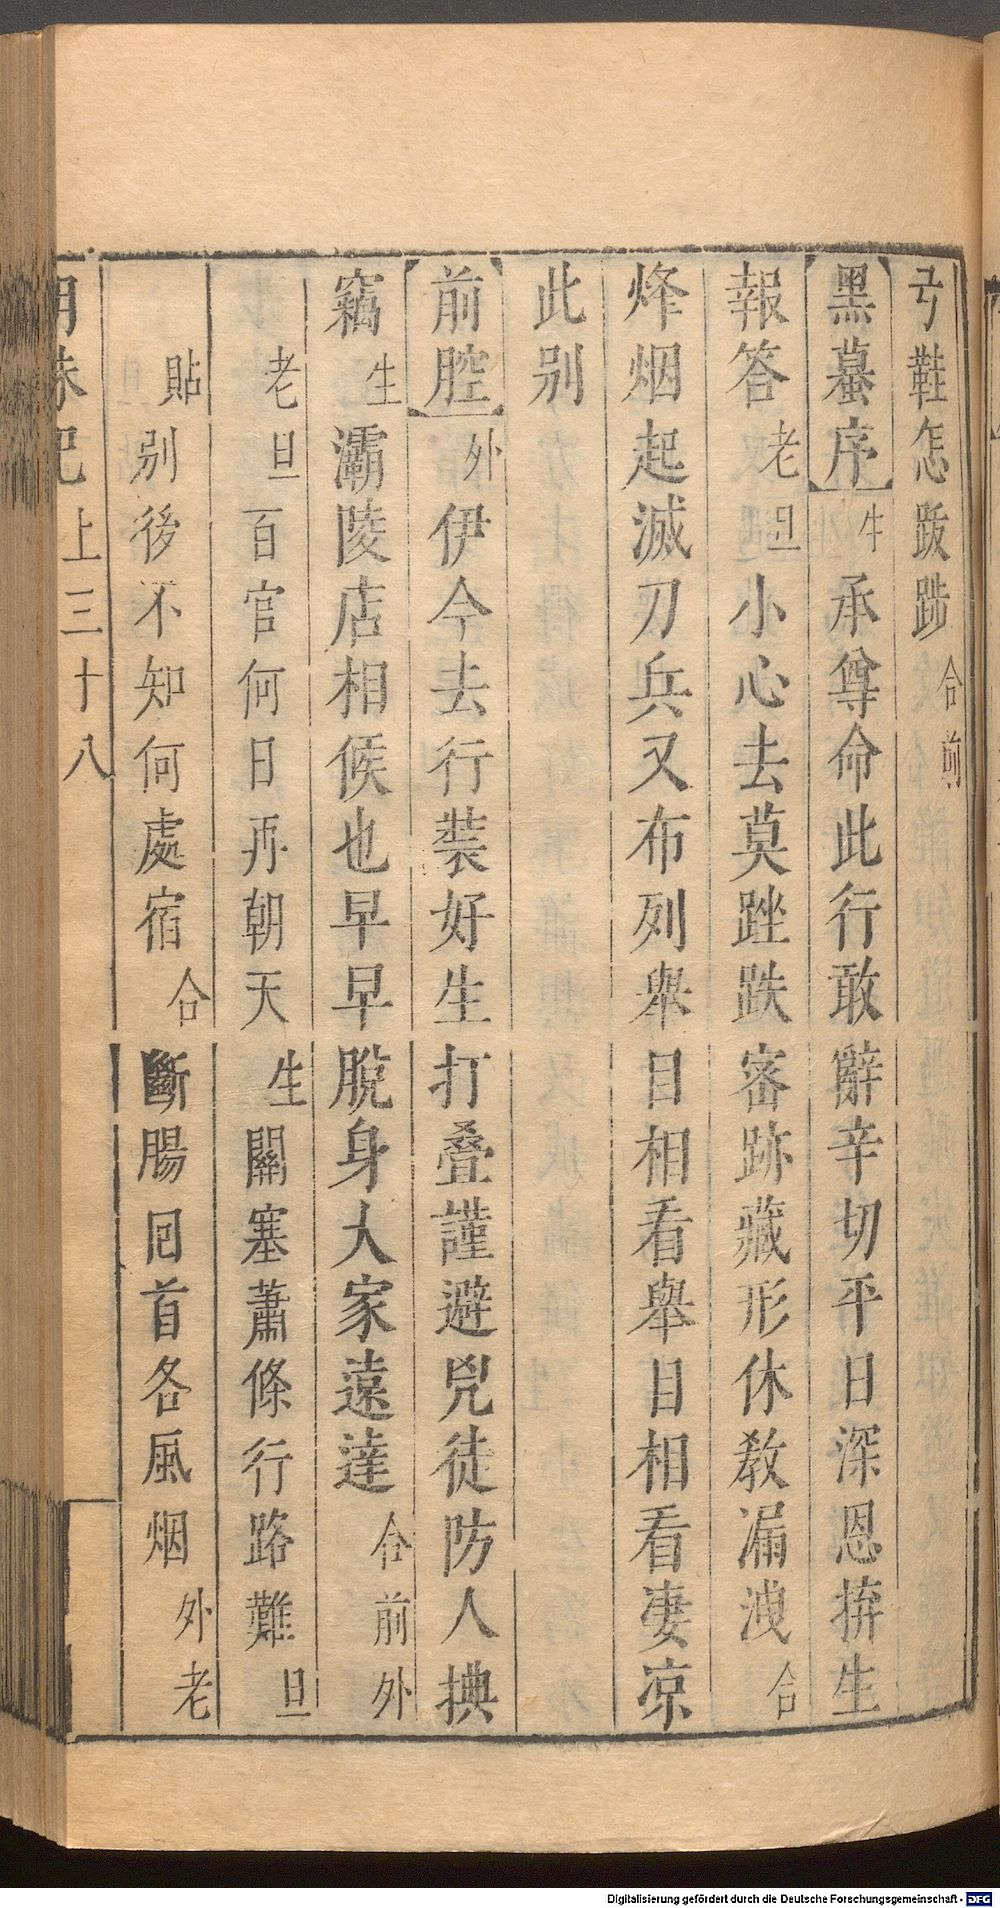 弓鞋怎跋跋合前
黑蟇序生承尊命此行敢辭辛切平日深恩拚生
報答老旦小心去莫跎跌密跡藏形休教漏洩合
烽烟起滅刀兵又布列舉目相看舉目相看凄凉
此别
前腔外伊今去行装好生打叠謹避兇徒防人㨪
竊生灞陵店相候也早早脫身人家遠達合前外
老旦百官何日再朝天生關塞蕭條行路難旦
貼别後不知何處宿合斷腸囘首各風烟外老
明珠記上三十八
Digitalisierung gefördert durch die Deutsche Forschungsgemeinschaft - DFG